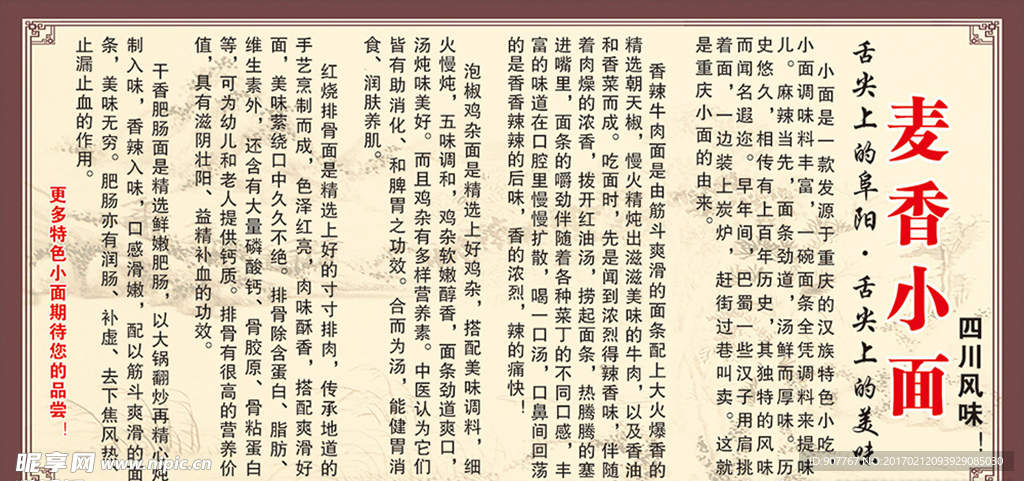 麦香小面
四川风味！
舌尖上的阜阳·舌尖上的美味
小面是一款发源于重庆的汉族特色小吃
小面调味料丰富，一碗面条全凭调料来提味
儿。麻辣当先，面条劲道，汤鲜而厚味。历
史悠久，相传有上百年历史，其独特的风味
而闻名遐迩。早年间，巴蜀一些汉子用肩挑
着面，一边装上炭炉，赶街过巷叫卖。这就
是重庆小面的由来。
香辣牛肉面是由筋斗爽滑的面条配上大火爆香的
精选朝天椒，慢火精炖出滋滋美味的牛肉，以及香油
和香菜而成。吃面时，先是闻到浓烈得辣香味，伴随
着肉燥的浓香，拨开红油汤，捞起面条，热腾腾的塞
进嘴里，面条的嚼劲伴随着各种菜丁的不同口感，丰
富的味道在口腔里慢慢扩散，喝一口汤，口鼻间回荡
的是香香辣辣的后味，香的浓烈，辣的痛快！
泡椒鸡杂面是精选上好鸡杂，搭配美味调料，细
火慢炖，五味调和，鸡杂软嫩醇香，面条劲道爽口，
汤炖味美好。而且鸡杂有多样营养素。中医认为它们
皆有助消化、和脾胃之功效。合而为汤，能健胃消
食、润肤养肌。
红烧排骨面是精选上好的寸寸排肉，传承地道的
手艺烹制而成，色泽红亮，肉味酥香，搭配爽滑好
面，美味萦绕口中久久不绝。排骨除含蛋白、脂肪、
维生素外，还含有大量磷酸钙、骨胶原、骨粘蛋白
等，可为幼儿和老人提供钙质。排骨有很高的营养价
值，具有滋阴壮阳、益精补血的功效。
干香肥肠面是精选鲜嫩肥肠，以大锅翻炒再精心炖
制入味，香辣入味，口感滑嫩，配以筋斗爽滑的面
条，美味无穷。肥肠亦有润肠、补虚、去下焦风热
止漏止血的作用。
更多特色小面期待您的品尝！
昵享网 www.nipic.cn
ID:907767 NO:20170212093929085030